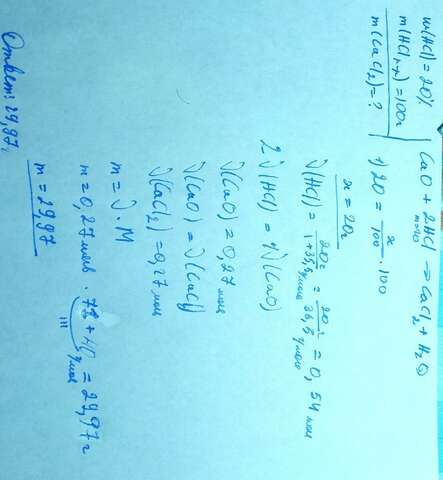 w(HCl) = 20%
m(HCl р-р) = 100г
m(CaCl₂) = ?
CaO + 2HCl → CaCl₂ + H₂O
m=20
1) 20 = x/100 · 100
x = 20г
ν(HCl) = 20г/1+35,5 г/моль = 20г/36,5 г/моль = 0,54 моль
2 ν(HCl) = 1ν(CaO)
ν(CaO) = 0,27 моль
ν(CaO) = ν(CaCl)
ν(CaCl₂) = 0,27 моль
m = ν · M
m = 0,27 моль · 71 + 40 г/моль = 29,97 г
111
m = 29,97
Ответ: 29,97г